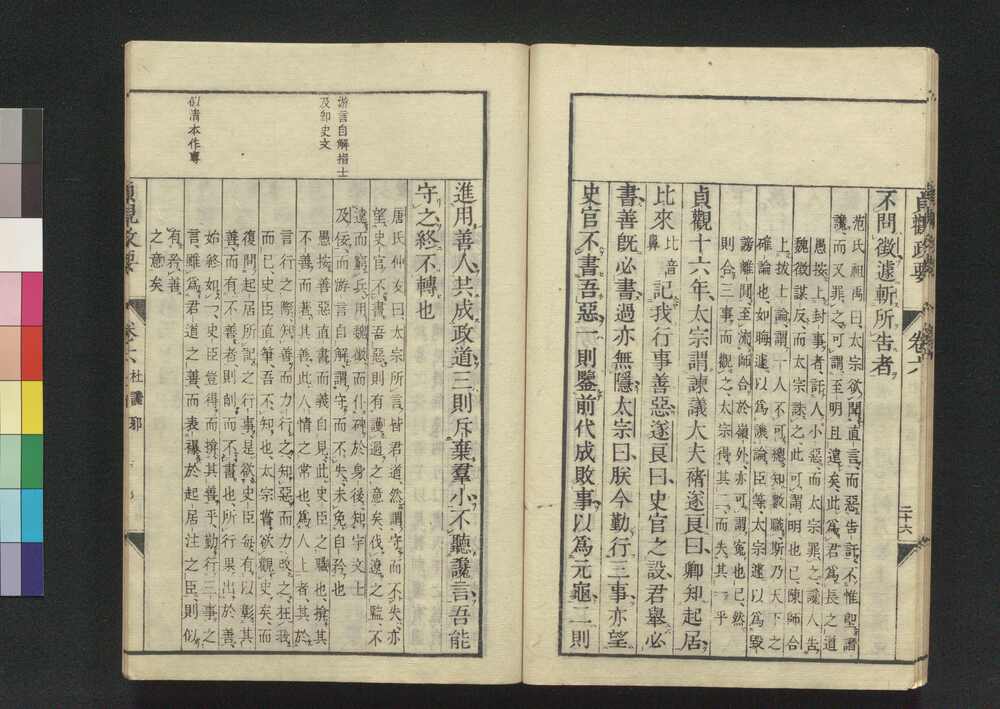 貞觀政要 卷六 二十六
不問徵遽斬所告者
范氏祖禹曰太宗欲聞直言而惡告訐不惟聖讒
讒而又罪之可謂至明且遠矣此爲君爲長之道
愚按上封事者訐人小惡而太宗罪之讒人告
魏徵謀反而太宗誅之此可謂明也已陳師合
上拔士論謂一人不可總知數職斯乃天下之
確論也如晦遽以爲譏論臣等太宗遽以爲毀
謗離間至流師合於嶺外亦可謂寃也已然
則合三事而觀之太宗得其二而失其一乎
貞觀十六年太宗謂諫議大夫禇遂良曰卿知起居
比來比音鼻記我行事善惡遂良曰史官之設君舉必
書善旣必書過亦無隱太宗曰朕今勤行三事亦望
史官不書吾惡一則鑒前代成敗事以爲元龜二則
進用善人共成政道三則斥棄羣小不聽讒言吾能
守之終不轉也
游言自解指士
及卸史文
唐氏仲友曰太宗所言皆君道然謂守而不失亦
望史官不書吾惡則有護過之意矣伐遼之監不
遠而窮兵用魏徵而仆碑於身後知宇文士
及佞而游言自解謂守而不失未免自矜也
愚按善惡直書而義自見此史臣之職也揜其
不善而著其善此人情之常也爲人上者其於
言行之際知善而力行之知惡而力改之狂我
而已史臣直筆吾不知也太宗嘗欲觀史矣而
似清本作專
復問起居所記之行事是欲史臣每有以彰其
善而有不善者則削而不書也所行果出於善
始終如一史臣豈得而揜其善乎勤行三事之
言雖爲君道之善而表襮於起居注之臣則似
有矜善
之意矣
貞觀政要 卷六 杜讒邪